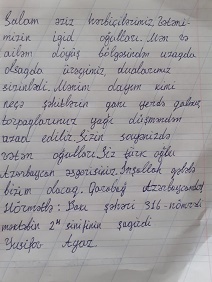 Salam əziz hərbiçilərimiz. Vətəni-
mizin igid oğulları. Mən və
ailəm döyüş bölgəsindən uzaqda
olsaqda ürəyimiz, dualarımız
sizinlədi. Mənim dayım kimi
neçə şəhidlərin qanı yerdə qalmır
torpaqlarımız yağı düşməndən
azad edilir. Sizin sayənizdə
vətən oğulları. Siz türk oğlu
Azərbaycan əsgərisiniz. İnşallah qələbə
bizim olacaq. Qarabağ Azərbaycandır!
Hörmətlə: Bakı şəhəri 316 nömrəli
məktəbin 2 sinifinin şagirdi
Yusifov Ayaz